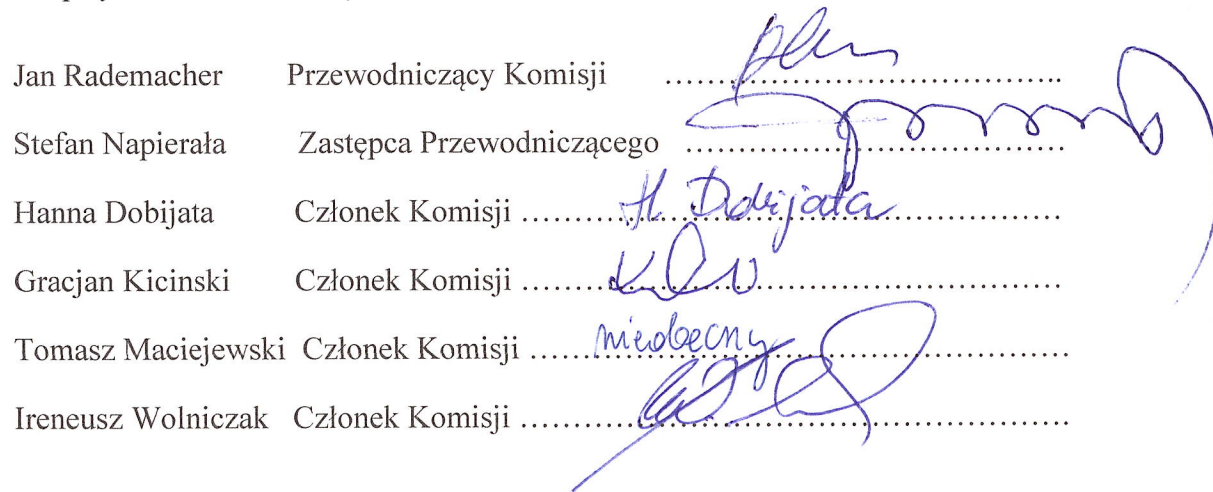 Jan Rademacher Przewodniczący Komisji ........................................
Stefan Napierała Zastępca Przewodniczącego ........................................
Hanna Dobijata Członek Komisji ........................................ H. Dobijata
Gracjan Kicinski Członek Komisji ........................................
Tomasz Maciejewski Członek Komisji ........................................ nieobecny
Ireneusz Wolniczak Członek Komisji ........................................